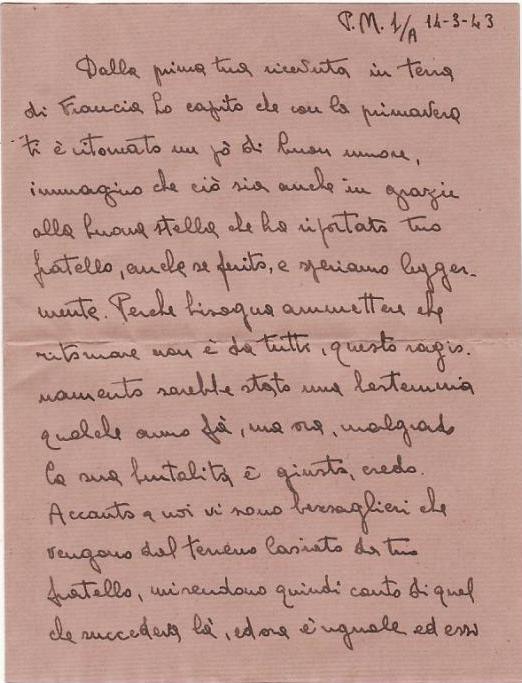 P.M. 1/A 14-3-43
Dalla prima tua ricevuta in terra
di Francia ho capito che con la primavera
ti è ritornato un pò di buon umore,
immagino che ciò sia anche in grazie
alla buona stella che ha riportato tuo
fratello, anche se ferito, e speriamo legger-
mente. Perche bisogna ammettere che
ritornare non è da tutti, questo ragio-
namento sarebbe stato una bestemmia
qualche anno fà, ma ora, malgrado
la sua brutalità è giusto, credo.
Accanto a noi vi sono bersaglieri che
vengono dal terreno lasciato da tuo
fratello, mi rendono quindi conto di quel
che succedeva là, ed ora è uguale ed essi